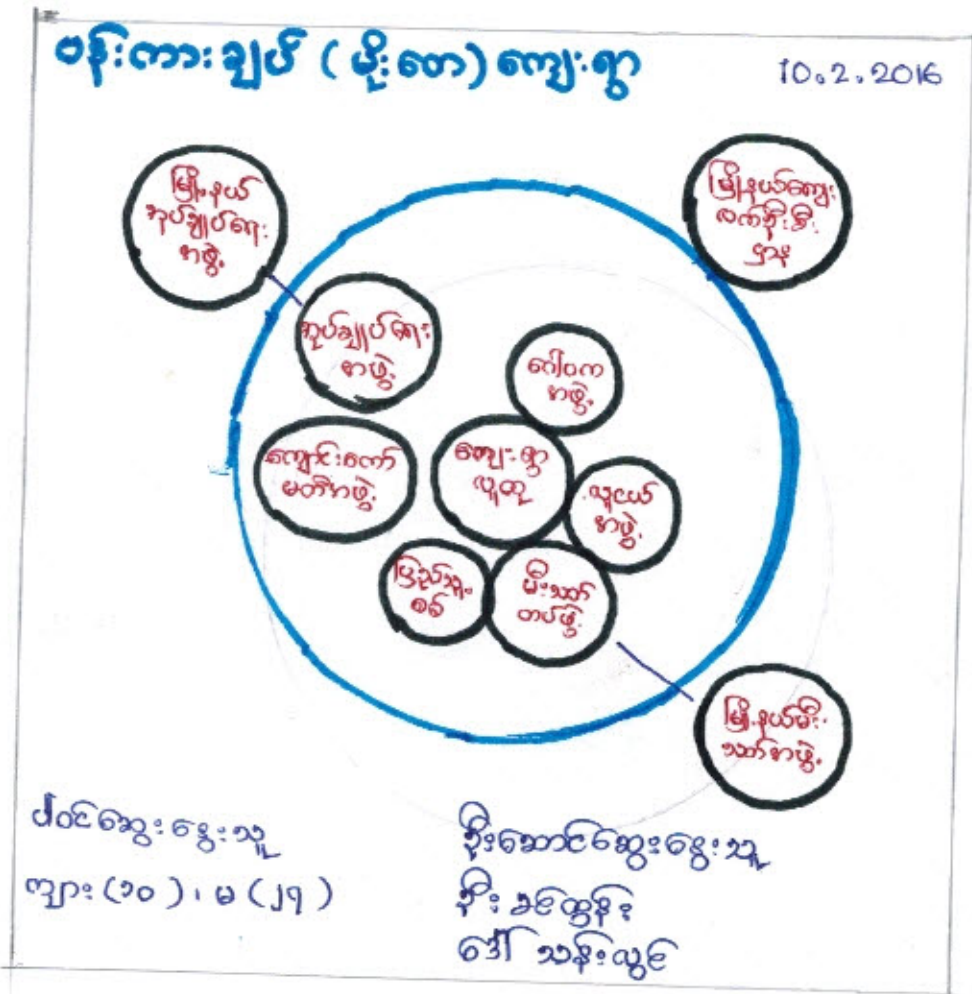 ဗန်းကားချုပ် (မိုးတေ) ကျေးရွာ
10.2.2016
မြို့နယ်
အုပ်ချုပ်ရေး
အဖွဲ့
မြို့နယ်ကျေး
လက်ဦးစီး
ဌာန
အုပ်ချုပ်ရေး
အဖွဲ့
ဂေါပက
အဖွဲ့
ကျောင်းကော်
မတီအဖွဲ့
ကျေးရွာ
လူထု
လူငယ်
အဖွဲ့
ပြည်သူ့
စစ်
မီးသတ်
တပ်ဖွဲ့
မြို့နယ်မီး
သတ်အဖွဲ့
ပါဝင်ဆွေးနွေးသူ
ကျား (၁၀)၊ မ (၂၅)
ဦးဆောင်ဆွေးနွေးသူ
ဦးခင်ထွန်း
ဒေါ်သန်းလွင်